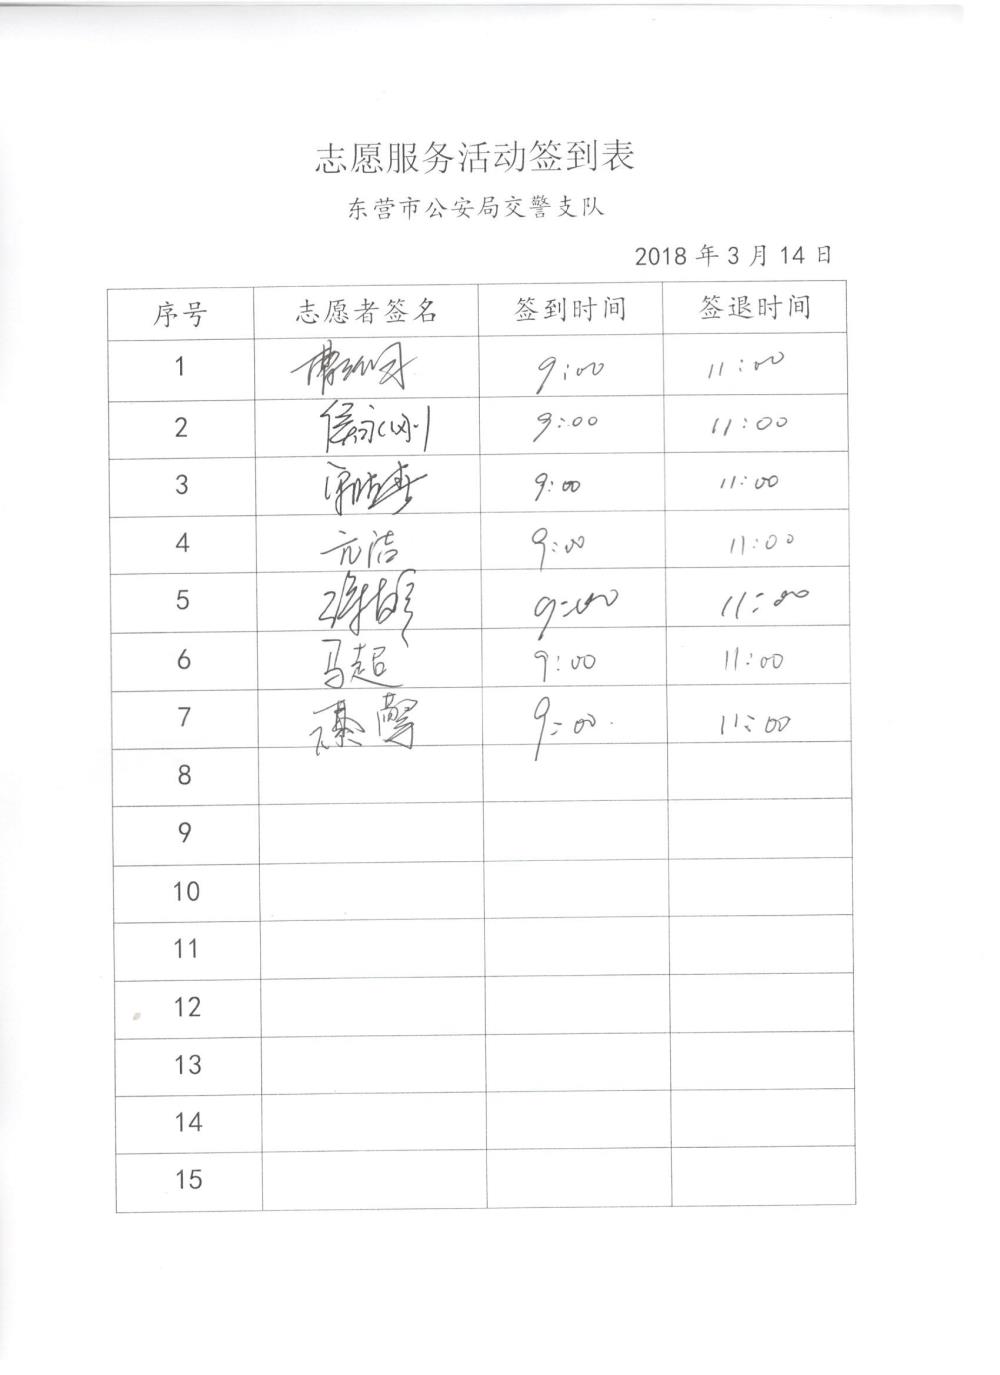 志愿服务活动签到表
东营市公安局交警支队
2018 年 3 月 14 日
序号 志愿者签名 签到时间 签退时间
1 9:00 11:00
2 侯永刚 9:00 11:00
3 9:00 11:00
4 亓洁 9:00 11:00
5 9:00 11:00
6 马超 9:00 11:00
7 秦馨 9:00 11:00
8
9
10
11
12
13
14
15